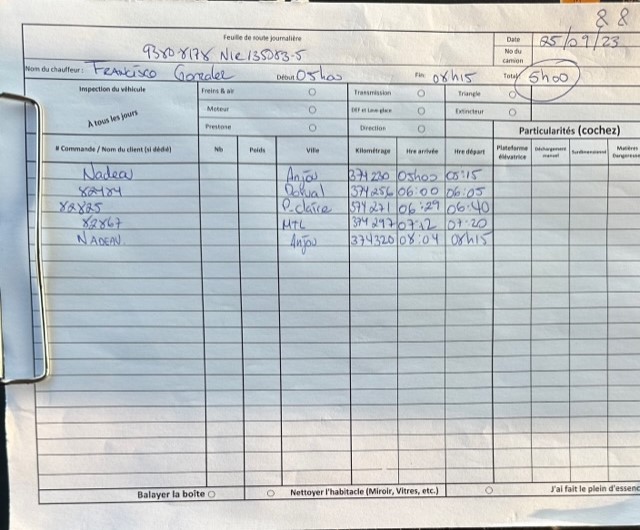 88
Feuille de route journalière
Date 25/09/23
9380 8178 Nir 135083-5
No du camion
Nom du chauffeur: Francisco Début 05h00 Fin 08h15 Total 5h00
Inspection du véhicule Freins & air Transmission Triangle
À tous les jours Moteur Extincteur
Prestone Direction Particularités (cochez)
# Commande / Nom du client (si dédié) Nb Poids Ville Kilométrage Hre arrivée Hre départ Plateforme élévatrice Déchargement manuel Matières dangereuses
Nadeau Anjou 374230 05h00 05:15
82484 Dorval 374256 06:00 06:05
82825 P-claire 374271 06:29 06:40
82867 MTL 374297 07:12 07:20
NADEAU Anjou 374320 08:04 08h15
Balayer la boîte Nettoyer l'habitacle (Miroir, Vitres, etc.) J'ai fait le plein d'essenc